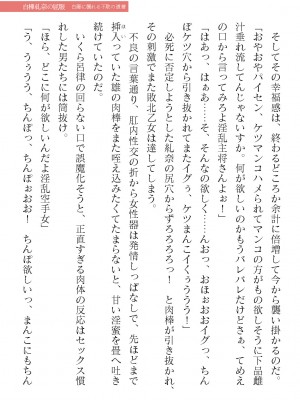 白樺糺奈の屈服
そしてその幸福感は、終わるどころか余計に倍増して今から襲い掛かるのだ。
「おやおやパイセン、ケツマンコハメられてマンコの方がもの欲しそうに下品雌
汁垂れ流してんじゃないすか。何が欲しいのかもうバレバレだけどさぁ、てめえ
の口から言ってみろよ淫乱主将さんよぉ！」
「はあっ、はぁっ…そ、そんなの欲しく……んおっ、おほぉおおイグっ、ちん
ぽケツ穴から引き抜かれてまたイグぅ、ケツまんこイくぅううっ！」
必死に否定しようとした糺奈の尻穴からずろろろろっ！　と肉棒が引き抜かれ、
その刺激でまた敗北乙女は達してしまう。
不良の言葉通り、肛内性交の折から女性器は発情しっぱなしで、先ほどまで
挿入っていた雄の肉棒をまた咥え込みたくてたまらないと、甘い淫蜜を畳へ吐き
続けていたのだ。
いくら呂律の回らない口で誤魔化そうと、正直すぎる肉体の反応はセックス慣
れした男たちには筒抜け。
「ほら、どこに何が欲しいんだよ淫乱空手女？」
「う、うぅうう、ちんぽっ、ちんぽぉおお！　ちんぽ欲しいっ、まんこにもちん